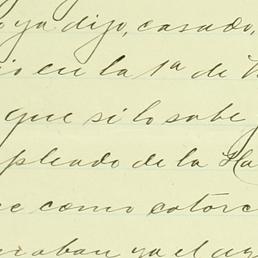 ya dijo, casado,
en la 1ª de
que si lo sabe
pleado de la Ha
como cotorc
raban ya el